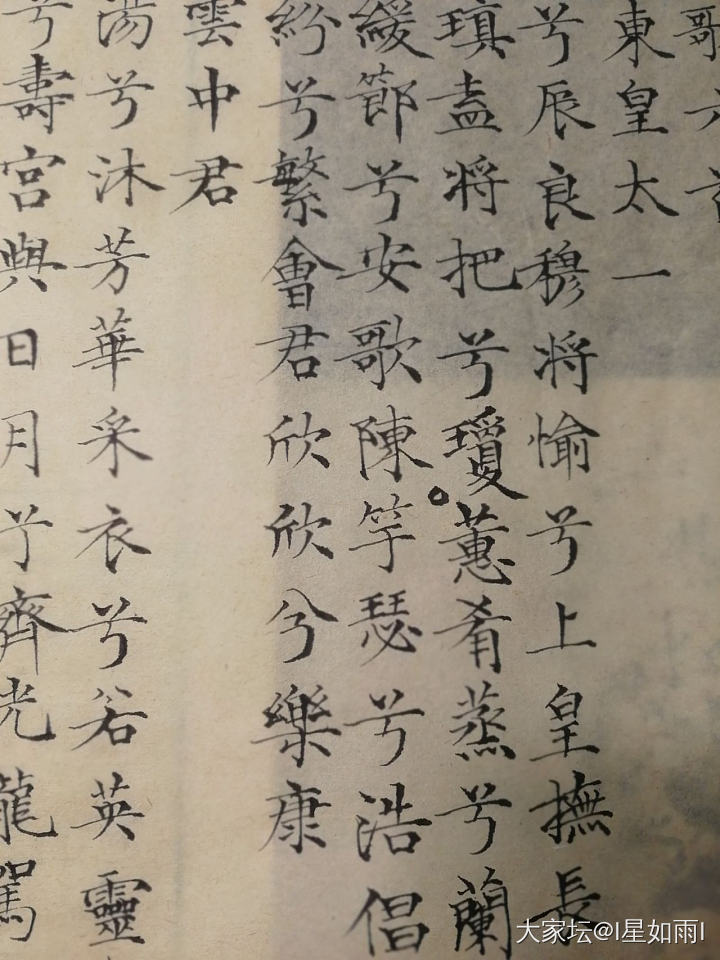 歌六首
東皇太一
兮辰良穆將愉兮上皇撫長
瑱盍將把兮瓊蕙肴蒸兮蘭
緩節兮安歌陳竽瑟兮浩倡
紛兮繁會君欣欣兮樂康
雲中君
湯兮沐芳華采衣兮若英靈
兮壽宮與日月兮齊光龍駕
大家坛@I星如雨I